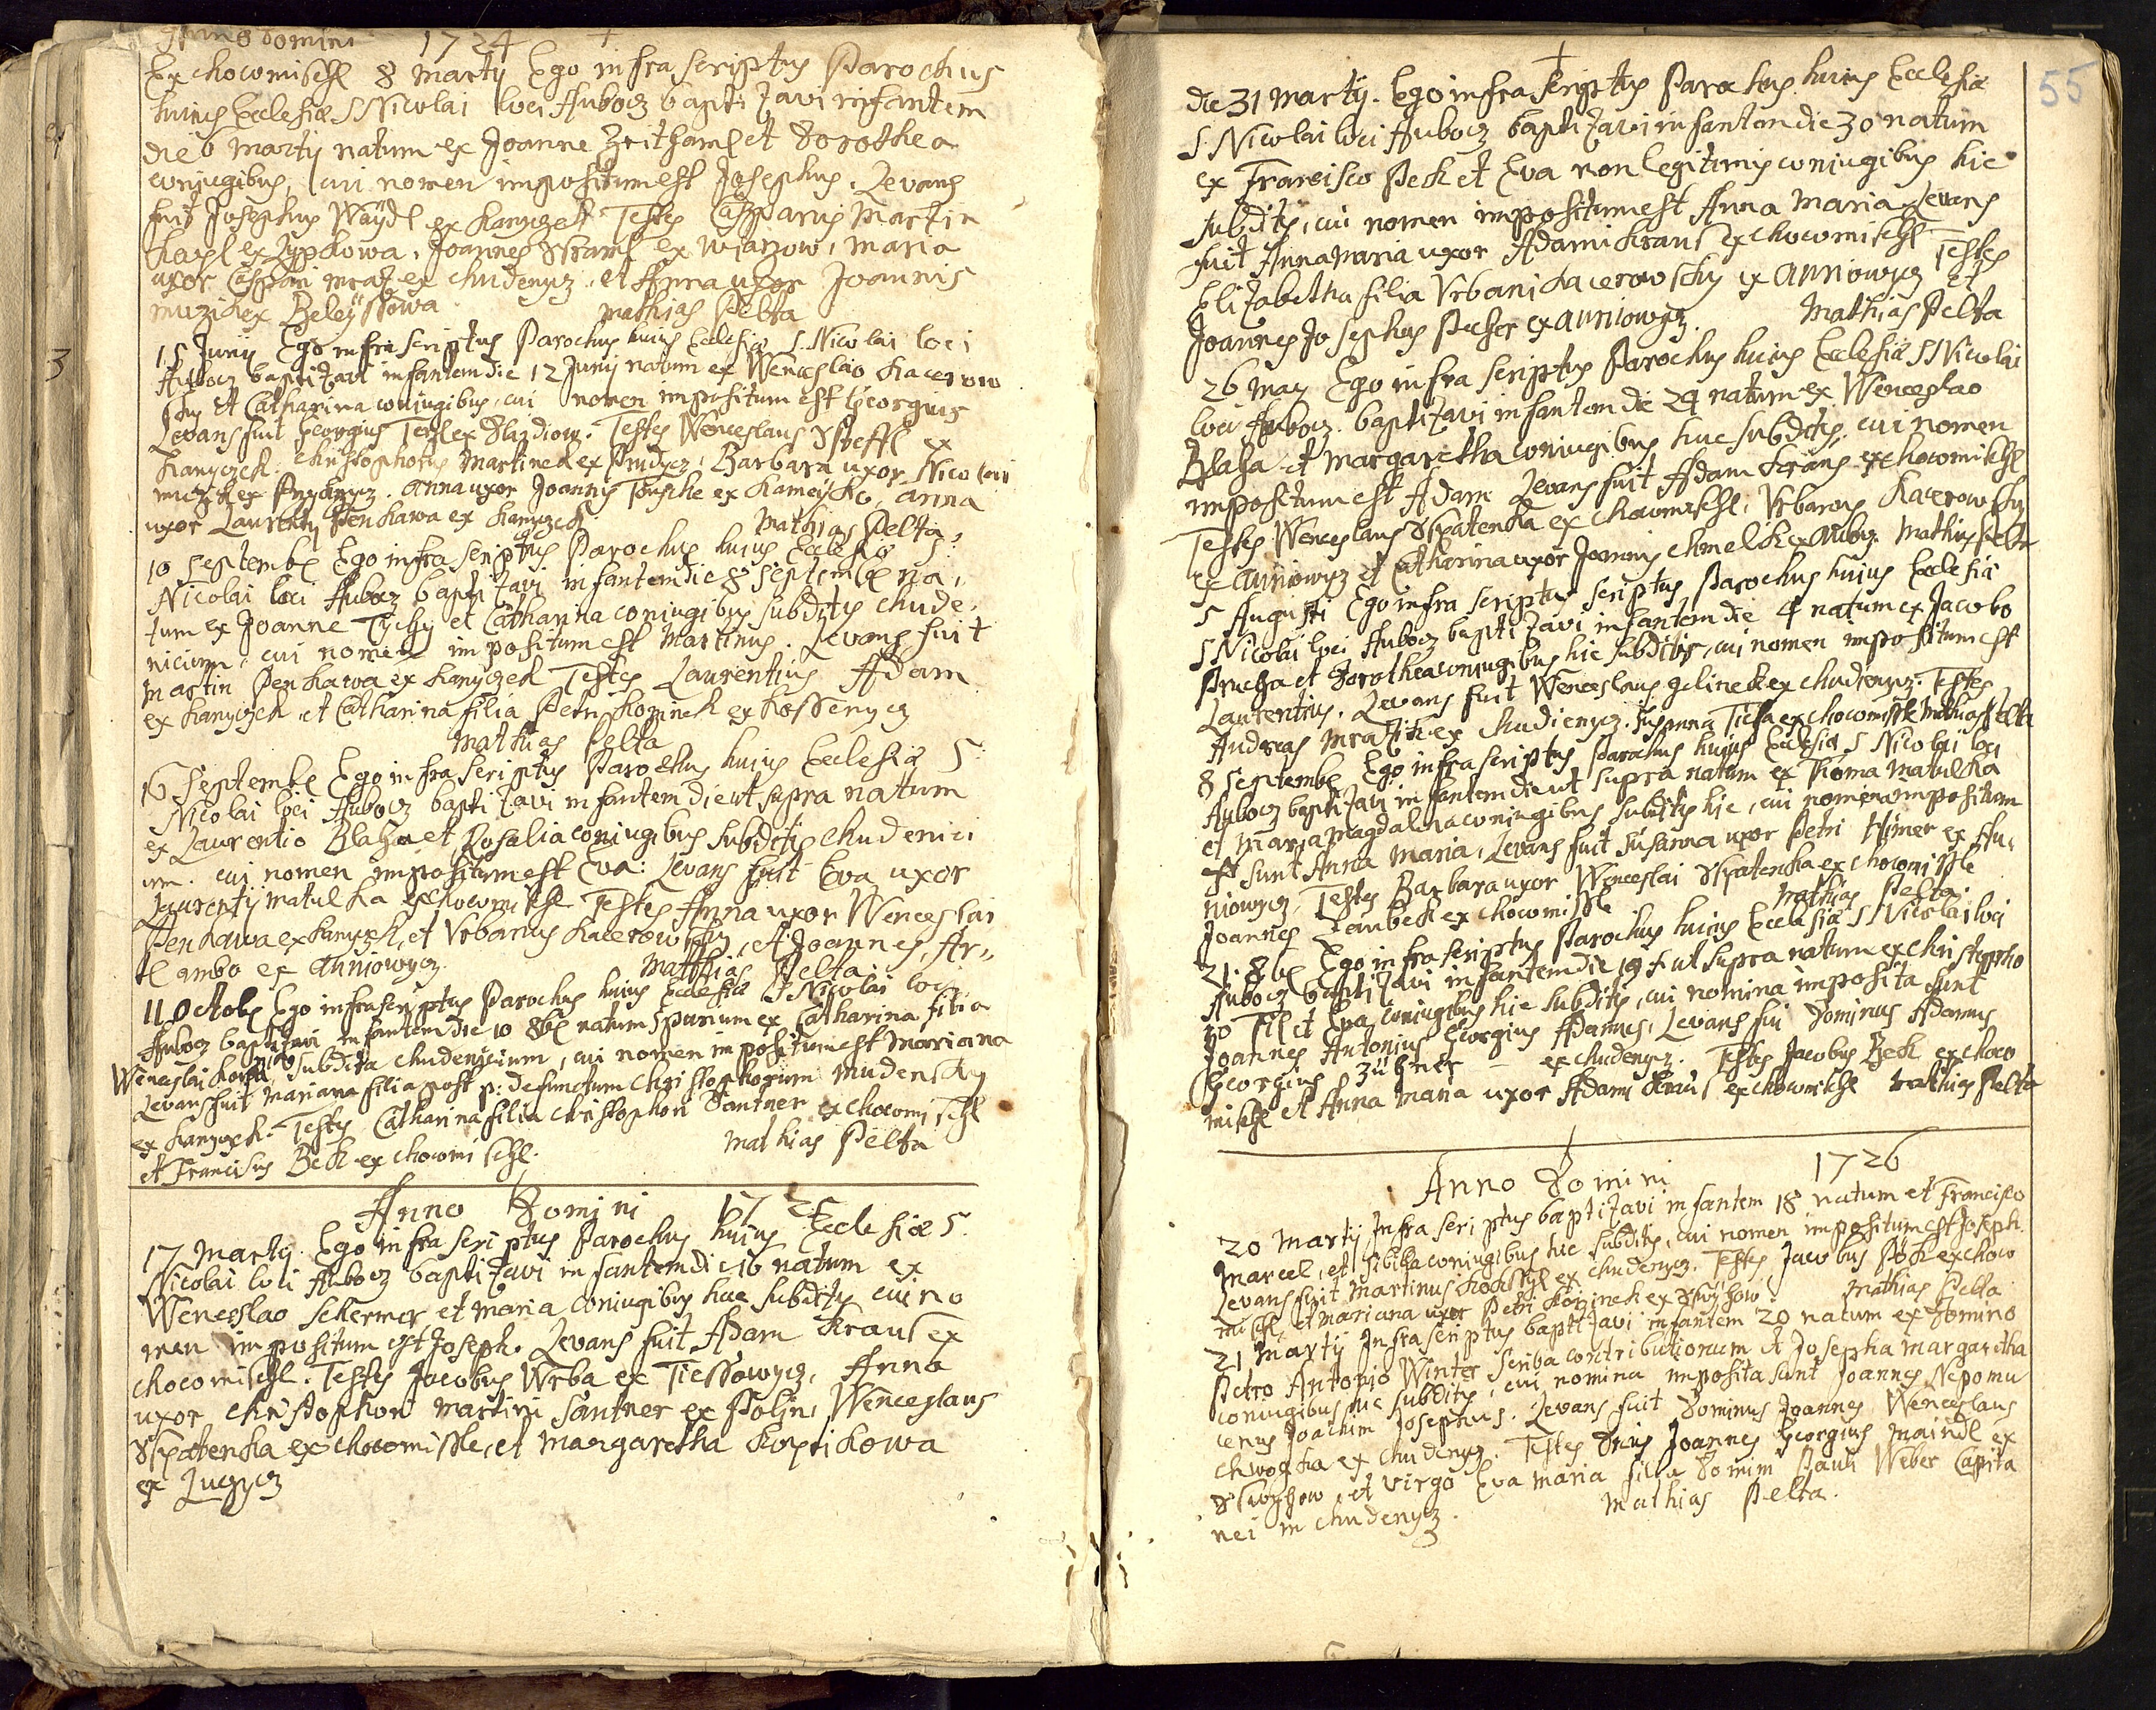 Anno Domini 1724
Ex chocomischl 8 Martij Ego infra scriptus Parochus
huius Ecclesiæ S Nicolai loci Aubocz baptizavi infantem
die 6 Martij natum ex Joanne Zeithaml et Dorothea
conjugibus, cui nomen impositum est Josephus. Levans
fuit Josephus Waÿdl ex Kanyczek Testes Casparus Martin
Kasl ex Lypkowa, Joannes ex maria
uxor Caspari mraz ex chudenycz et Anna uxor Joannis
muzik ex Beleyssowa. mathias Pelta
15 Junij Ego infra scriptus Parochus huius Ecclesiæ S. Nicolai loci
Aubocz baptizavi infantem die 12 Junij natum ex Wenceslao Kacerow
sky et Catharina conjugibus, cui nomen impositum est Georgius
Levans fuit Georgius ex Testes Wenceslaus ex
Kanyczek. christophorus Martinek ex Barbara uxor Nicolai
muzik ex anna uxor Joannis ex Kameyk, anna
uxor Laurentij Penkawa ex Kanyczek Mathias Pelta
10 Septembr Ego infra scriptus Parochus huius Ecclesiæ S:
Nicolai loci Aubocz baptizavi infantem die 8 Septembr na,
tum ex Joanne Tychy et Catharina coniugibus subditis chude,
nicium, cui nomen impositum est Martinus. Levans fuit
Martin Penkawa ex Kanyczek Testes Laurentius Adam
ex Kanyczek, et Catharina filia Petri Kozinek ex Kossenycz
Mathias Pelta
16 Septembr Ego infra scriptus Parochus huius Ecclesiæ S:
Nicolai loci Aubocz baptizavi infantem die ut supra natum
ex Laurentio Blaha et Rosalia coniugibus subditis chudenici
um. cui nomen impositum est Eva: Levans fuit Eva uxor
Laurentij Matulka ex chocomischl Testes Anna uxor Wenceslai
Penkawa ex Kanyczek, et Urbanus Kacerowsky, et Joannes Ar,,
tl ambo ex auniowycz. Matthias Pelta
11 Octobr Ego infra scriptus Parochus huius Ecclesiæ S Nicolai loci
Aubocz baptizavi infantem die 10 8br natum spurium ex Catharina filia
Wenceslai subdita chudenicium, cui nomen impositum est Mariana
Levans fuit Mariana filia post p: defunctum Christophorum Mudensky
ex Kanyczek. Testes Catharina filia christophori Santner ex chocomischl
et Franciscus Beck ex chocomischl. Mathias Pelta
Anno Domini 1725
17 Martij. Ego infra scriptus Parochus huius Ecclesiæ S.
Nicolai loci Aubocz baptizavi infantem die 16 natum ex
Wenceslao Schermer, et Maria coniugibus huc subditis cui no
men impositum est Joseph. Levans fuit Adam Kraus ex
chocomischl. Testes Jacobus Wrba ex Tiessowycz, Anna
uxor christophori Martini Santner ex Poljni Wenceslaus
Sspatenka ex chocomissle, et Margaretha Koprikowa
ex Luczycz
55
die 31 Martij. Ego infra scriptus Parochus huius Ecclesiæ
S. Nicolai loci Aubocz baptizavi infantem die 30 natum
ex Francisco Peck et Eva non legitimis conjugibus hic
subditis, cui nomen impositum est Anna Maria Levans
fuit Anna Maria uxor Adami Kraus ex chocomischl Testes
Elizabetha filia Urbani Kacerowsky ex auniowycz et
Joannes Josephus Pecher ex auniowycz. Mathias Pelta
26 May Ego infra scriptus Parochus huius Ecclesiæ S Nicolai
loci Aubocz baptizavi infantem die 24 natum ex Wenceslao
Blaha et Margaretha coniugibus huc subditis, cui nomen
impositum est Adam Levans fuit Adam Kraus ex chocomischl
Testes Wenceslaus Sspatenka ex chocomischl, Urbanus Kacerowsky
ex auniowycz et Catharina uxor Joannis chmelik ex Aubocz Mathias Pelta
5 Augusti Ego infra scriptus scriptus Parochus huius Ecclesiæ
S Nicolai loci Aubocz baptizavi infantem die 4 natum ex Jacobo
Prucha et Dorothea coniugibus hic subditis, cui nomen impositum est
Laurentius. Levans fuit Wenceslaus gelinek ex chudienycz. Testes
Andreas Mrastik ex chudienycz. Susanna Ticha ex chocomissle Mathias Pelta
8 Septembr Ego infra scriptus Parochus huius Ecclesiæ S Nicolai loci
Aubocz baptizavi infantem die ut supra natum ex Thoma Matulka
et Maria Magdalena coniugibus subditis hic, cui nomen impositum
est sunt Anna Maria, Levans fuit Susanna uxor Petri Himer ex Au,
niowycz, Testes Barbara uxor Wenceslai Sspatenka ex chocomissle
Joannes Zanbeck ex chocomissle Mathias Pelta.
21. 8br Ego infra scriptus Parochus huius Ecclesiæ S Nicolai loci
Aubocz baptizavi infantem die 19 ut supra natum ex christoppho
ro Til et Eva coniugibus hic subditis, cui nomina imposita sunt
Joannes Antonius Georgius Adamus. Levans fui Dominus Adamus
Georgius Zübner ex chudenycz. Testes Jacobus Beck ex choco
mischl et Anna Maria uxor Adami Kraus ex chocomischl Mathias Pelta
Anno Domini 1726
20 Martij Infra scriptus baptizavi infantem 18 natum et Francisco
Marcel, et Sibilla coniugibus hic subditis, cui nomen impositum est Joseph.
Levans fuit Martinus ex chudenycz. Testes Jacobus Pök ex choco
mischl, et Mariana uxor Petri Kozinek ex Sswyhow. Mathias Pelta
21 Martij Infra scriptus baptizavi infantem 20 natum ex Domino
Petro Antonio Winter Scriba contributionum et Josepha Margaretha
coniugibus hic subditis, cui nomina imposita sunt Joannes Nepomu
cenus Joachim Josephus. Levans fuit Dominus Joannes Wenceslaus
chwogka ex chudenycz. Testes Dnus Joannes Georgius Maindl ex
Sswyhow, et virgo Eva Maria filia Domini Pauli Weber Capita
nei in chudenycz. Mathias Pelta.